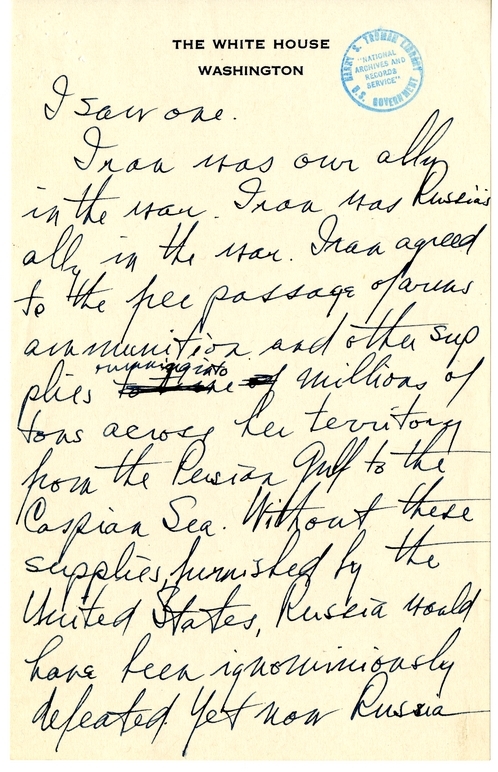 THE WHITE HOUSE
WASHINGTON
HARRY S. TRUMAN LIBRARY
"NATIONAL
ARCHIVES AND
RECORDS
SERVICE"
U.S. GOVERNMENT
I saw one.
Iran was our ally
in the war. Iran was Russia's
ally in the war. Iran agreed
to the free passage of arms
ammunition and other sup
running into
plies millions of
tons across her territory
from the Persian Gulf to the
Caspian Sea. Without these
supplies, furnished by the
United States, Russia would
have been ignominiously
defeated Yet now Russia